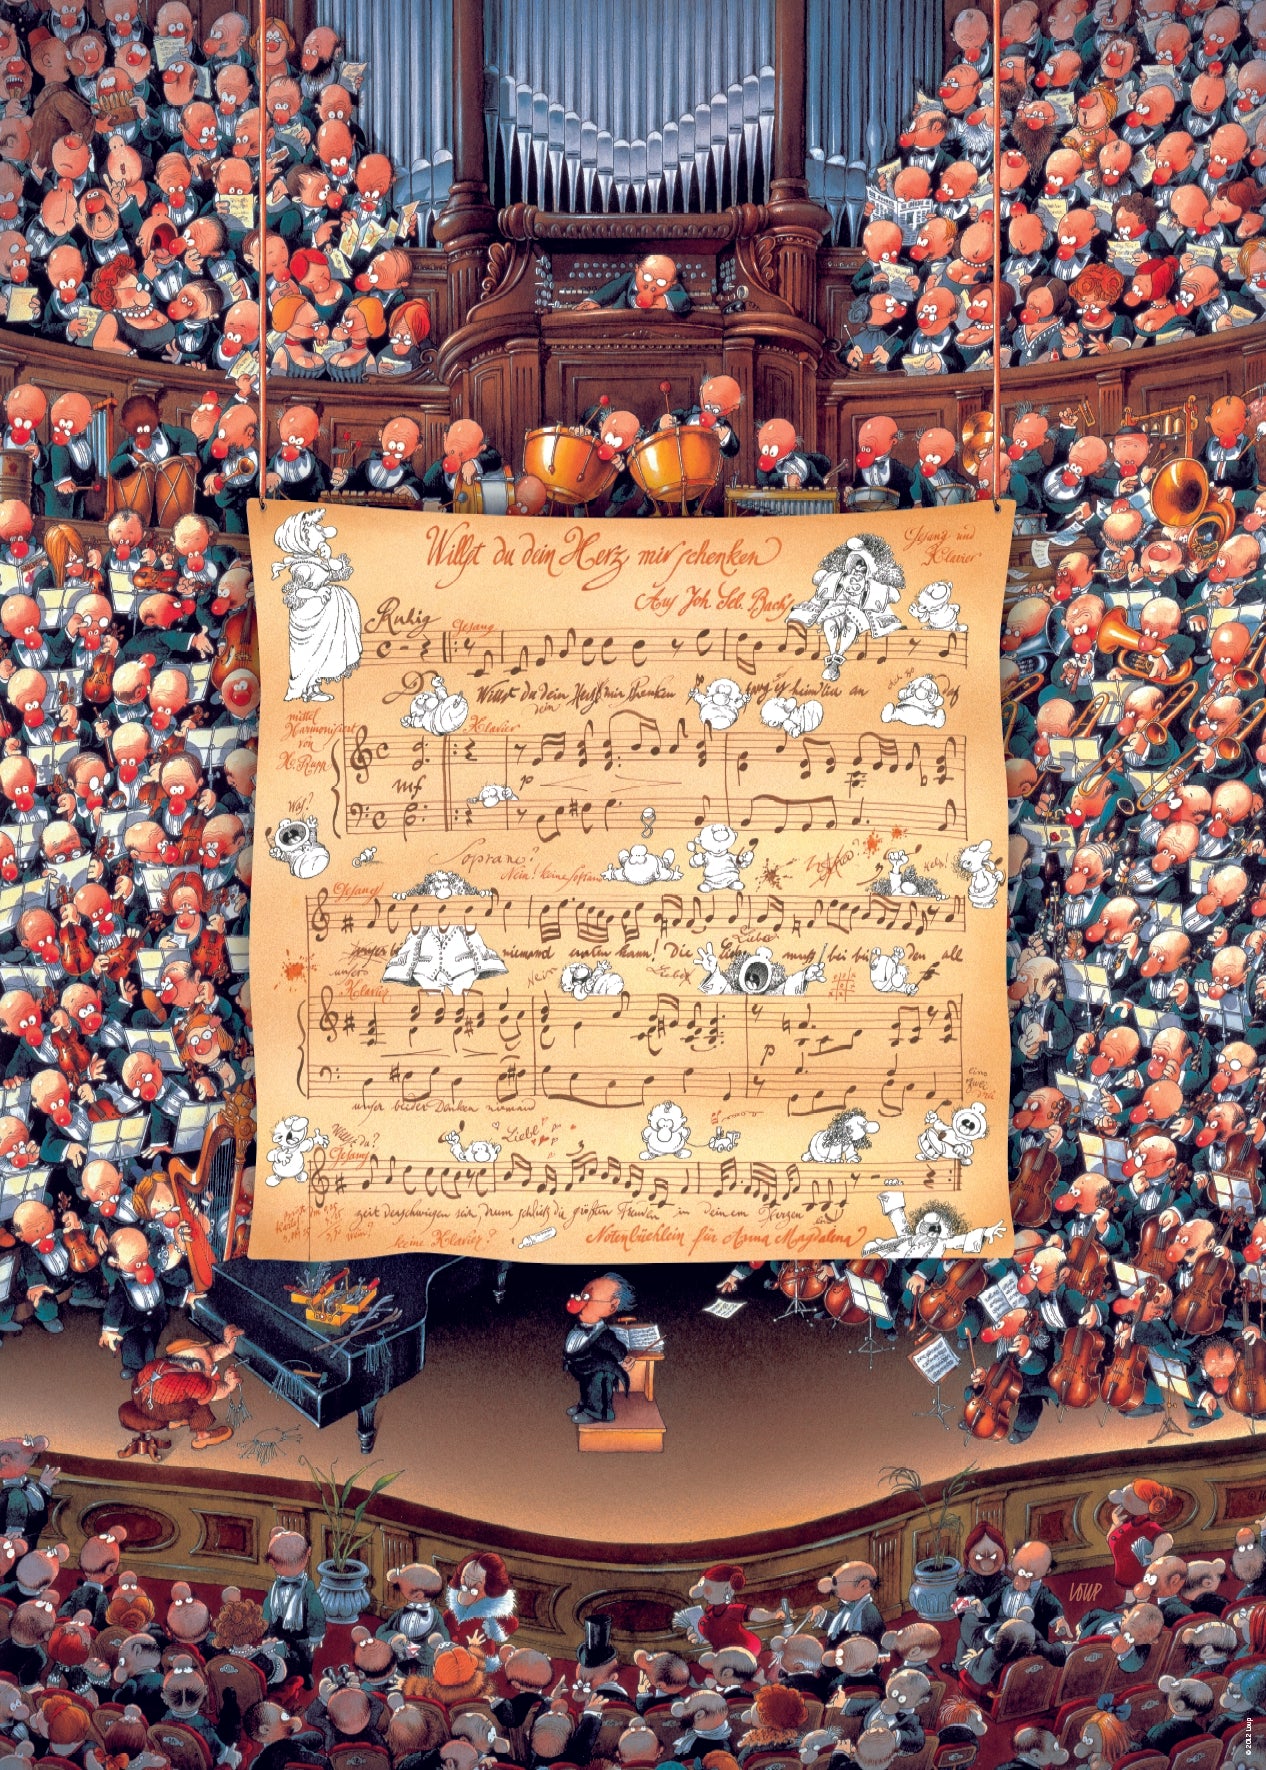 Willst du dein Herz mir schenken
Gesang und
Klavier
Aus Joh. Seb. Bach's
Ruhig
Gesang
Willst du dein Herz mir schenken
dein
so fang es heimlich an
daß
mittel
Harmonisiert
von
H. Rupp
Klavier
mf
p
Was?
Soprano?
Nein! keine Soprano
Gesang
niemand erraten kann! Die Liebe muß bei beiden all
Liebe
unsers
Nein
Liebe
Klavier
p
eins
zwei
drei
unser beider Denken niemand
Willst du?
Liebe
Gesang
3
zeit verschwiegen sein, drum schließ die größten Freuden in deinem Herzen ein
keine Klavier?
Notenbüchlein für Anna Magdalena
LOUP
© 2012 Loup